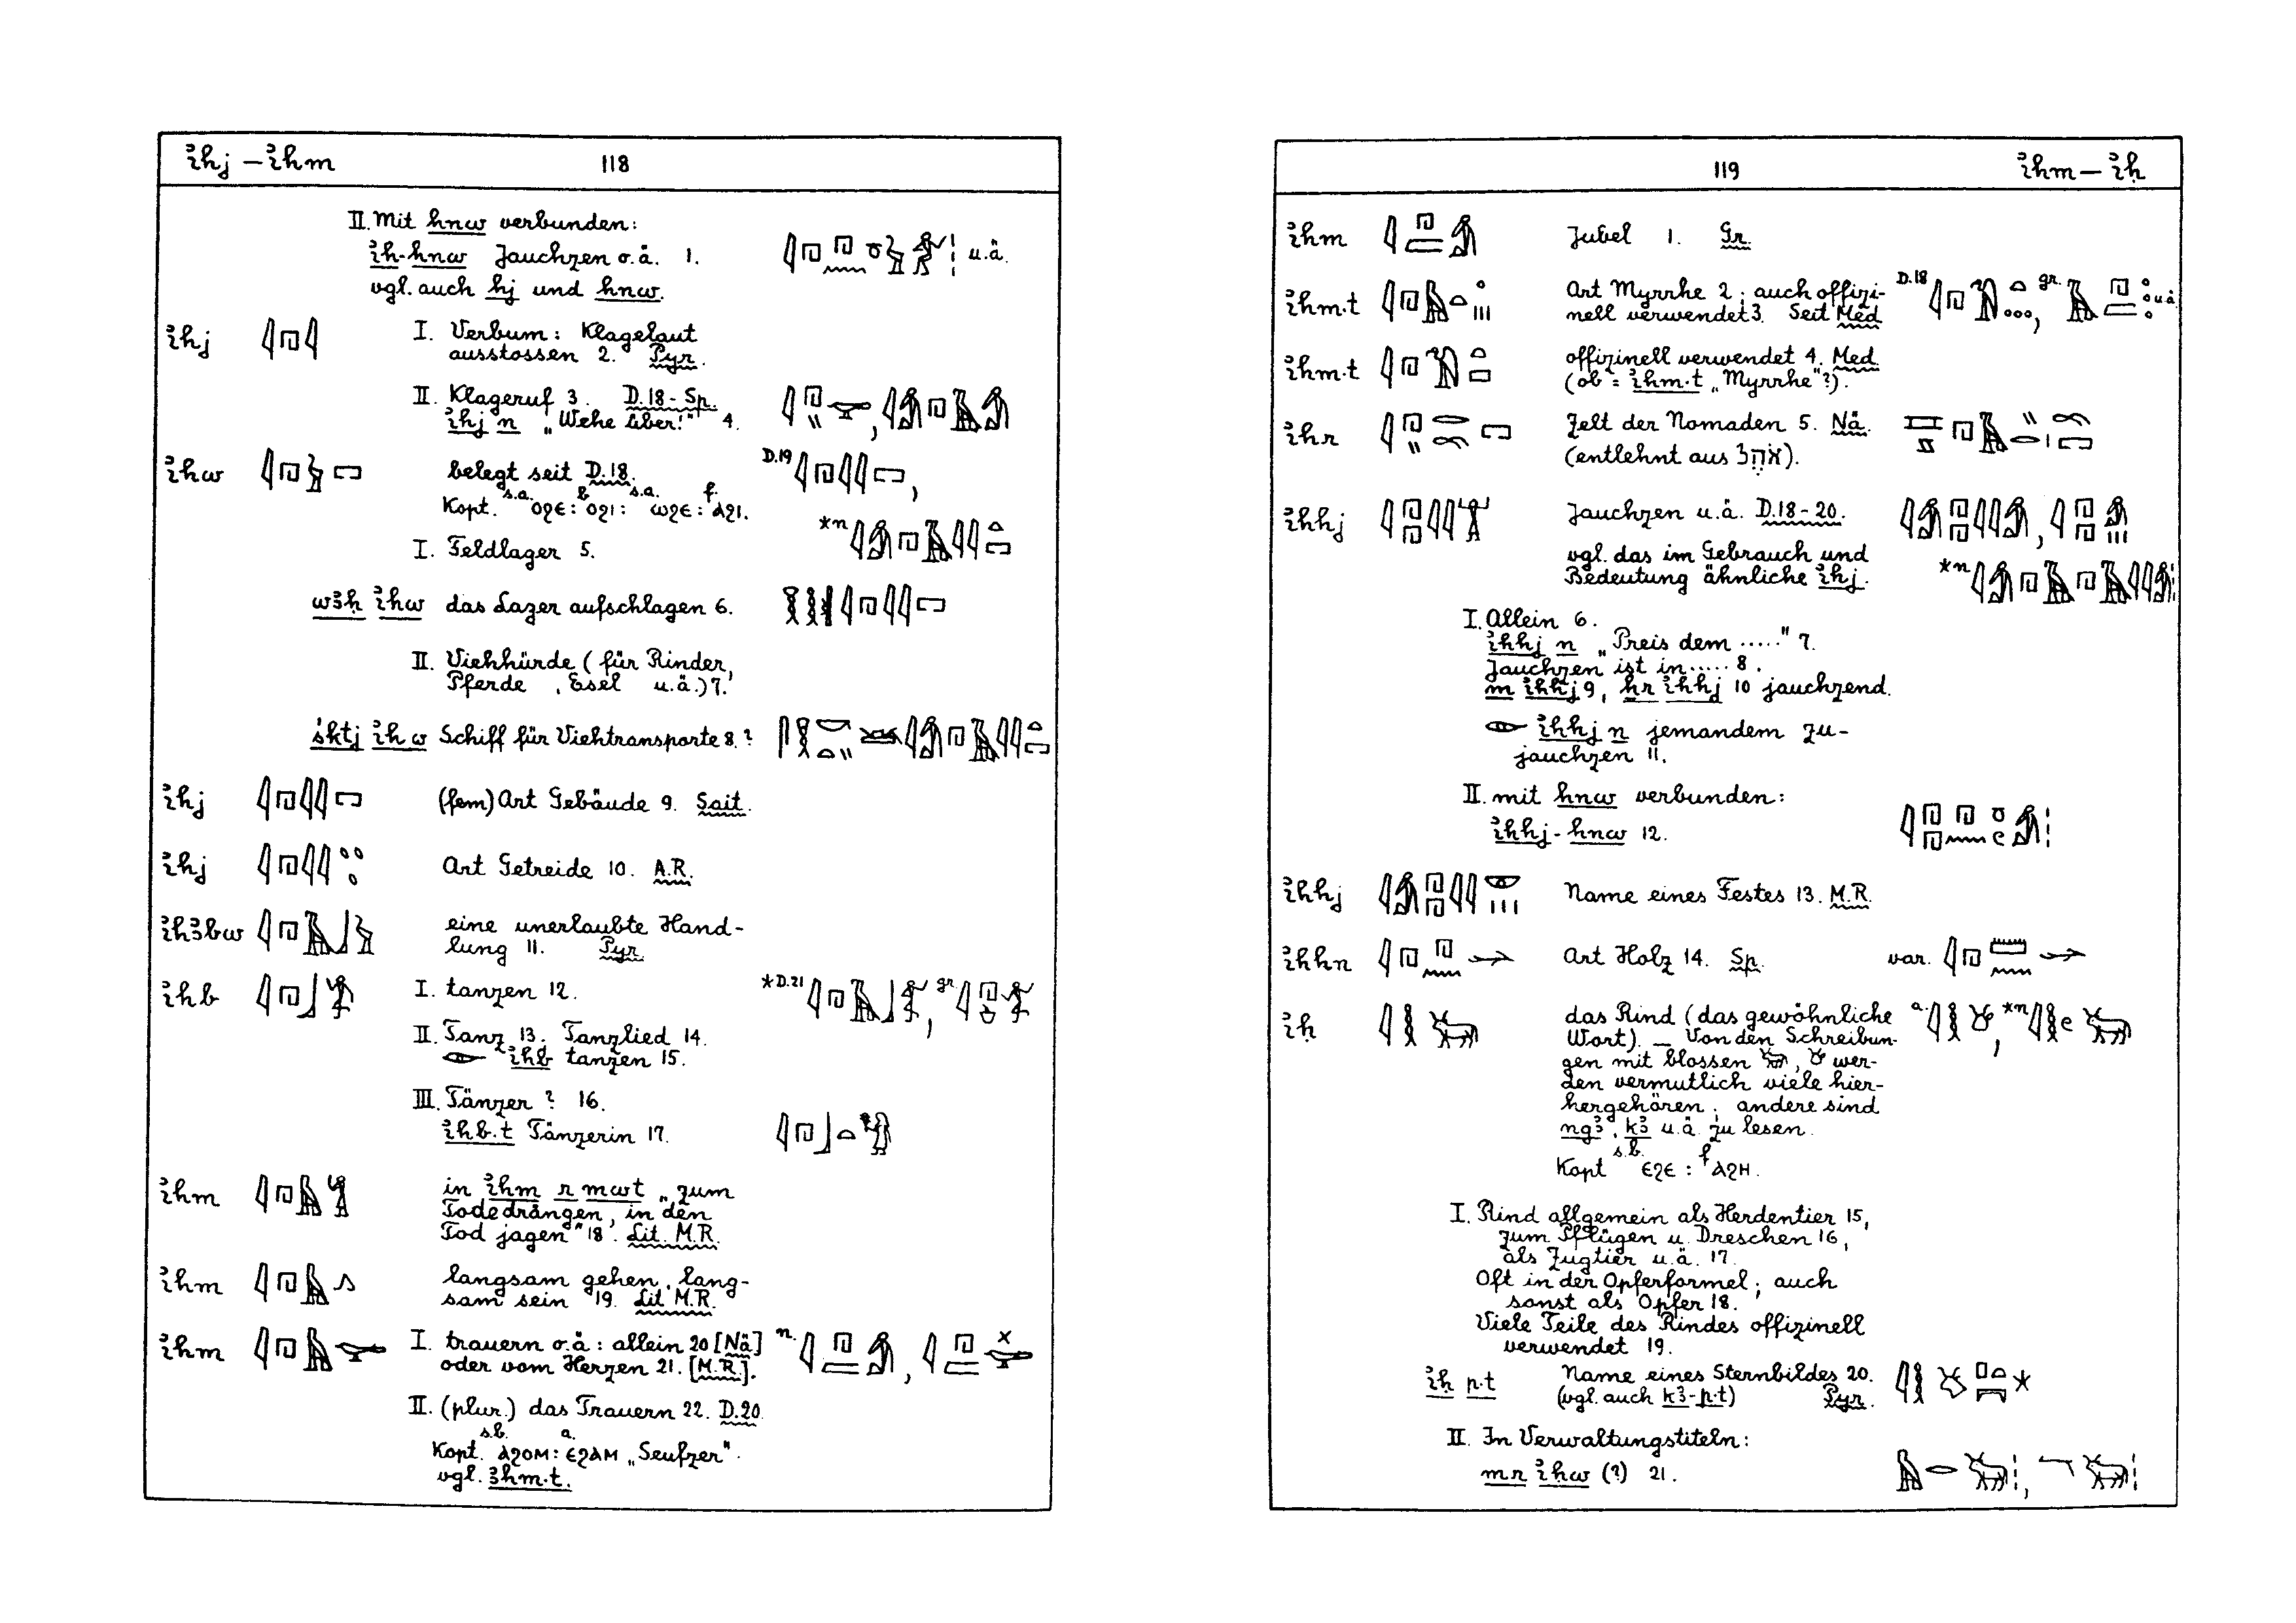 ı͗hj – ı͗hm 118
II. Mit hnw verbunden:
ı͗h-hnw Jauchzen o.ä. 1. u.ä.
vgl. auch hj und hnw.
ı͗hj I. Verbum: Klagelaut
ausstossen 2. Pyr.
II. Klageruf 3. D.18 - Sp.
ı͗hj n „Wehe über!" 4.
ı͗hw belegt seit D.18. D.19
s.a. b s.a. f.
Kopt. ⲟϩⲉ: ⲟϩⲓ: ⲱϩⲉ: ⲁϩⲓ.
*n
I. Feldlager 5.
wꜣḥ ı͗hw das Lager aufschlagen 6.
II. Viehhürde (für Rinder,
Pferde, Esel u.ä.) 7.
śktj ı͗hw Schiff für Viehtransporte 8.?
ı͗hj (fem) Art Gebäude 9. Sait.
ı͗hj Art Getreide 10. A.R.
ı͗hꜣbw eine unerlaubte Hand-
lung 11. Pyr.
ı͗hb I. tanzen 12. *D.21 gr.
II. Tanz 13. Tanzlied 14.
ı͗hb tanzen 15.
III. Tänzer ? 16.
ı͗hb.t Tänzerin 17.
ı͗hm in ı͗hm r mwt „zum
Tode drängen, in den
Tod jagen" 18. Lit. M.R.
ı͗hm langsam gehen, lang-
sam sein 19. Lit M.R.
ı͗hm I. trauern o.ä: allein 20 [Nä] n.
oder vom Herzen 21. [M.R.].
II. (plur.) das Trauern 22. D.20.
s.b. a.
Kopt. ⲁϩⲟⲙ: ⲉϩⲁⲙ „Seufzer".
vgl. ꜣhm.t.
119 ı͗hm – ı͗ḥ
ı͗hm Jubel 1. Gr.
ı͗hm.t Art Myrrhe 2; auch offizi- D.18 gr. u.ä.
nell verwendet 3. Seit Med
ı͗hm.t offizinell verwendet 4. Med.
(ob = ı͗hm.t „Myrrhe"?).
ı͗hr Zelt der Nomaden 5. Nä.
(entlehnt aus אֹהֶל).
ı͗hhj Jauchzen u.ä. D.18 - 20.
vgl. das im Gebrauch und
Bedeutung ähnliche ı͗hj. *n
I. Allein 6.
ı͗hhj n „Preis dem ....." 7.
Jauchzen ist in ..... 8.
m ı͗hhj 9, hr ı͗hhj 10 jauchzend.
ı͗hhj n jemandem zu-
jauchzen 11.
II. mit hnw verbunden:
ı͗hhj - hnw 12.
ı͗hhj Name eines Festes 13. M.R.
ı͗hhn Art Holz 14. Sp. var.
ı͗ḥ das Rind (das gewöhnliche a. *n
Wort). — Von den Schreibun-
gen mit blossen , wer-
den vermutlich viele hier-
hergehören; andere sind
ngꜣ, kꜣ u.ä. zu lesen.
s.b. f
Kopt ⲉϩⲉ: ⲁϩⲏ.
I. Rind allgemein als Herdentier 15,
zum Pflügen u. Dreschen 16,
als Zugtier u.ä. 17.
Oft in der Opferformel; auch
sonst als Opfer 18.
Viele Teile des Rindes offizinell
verwendet 19.
ı͗ḥ p.t Name eines Sternbildes 20.
(vgl. auch kꜣ-p.t) Pyr.
II. In Verwaltungstiteln:
mr ı͗ḥw (?) 21.